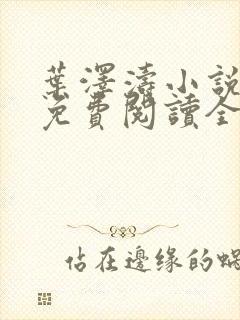 葉澤濤小説
免費閱讀全
佔在邊缘的蝸